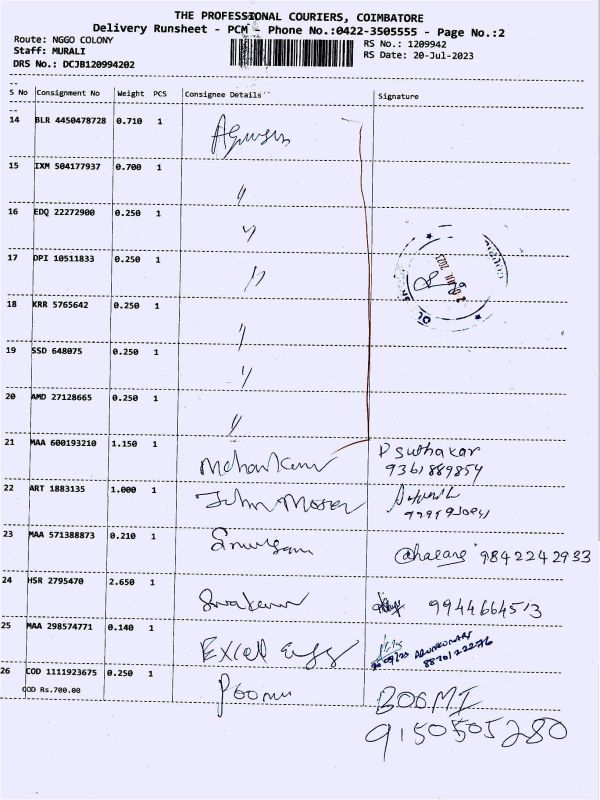 THE PROFESSIONAL COURIERS, COIMBATORE
Delivery Runsheet - PCM - Phone No.:0422-3505555 - Page No.:2
Route: NGGO COLONY
RS No.: 1209942
Staff: MURALI
RS Date: 20-Jul-2023
DRS No.: DCJB120994202
S No Consignment No Weight PCS Consignee Details Signature
14 BLR 4450478728 0.710 1
15 IXM 504177937 0.700 1 "
16 EDQ 22272900 0.250 1 "
17 DPI 10511833 0.250 1 "
18 KRR 5765642 0.250 1 "
19 SSD 648075 0.250 1 "
20 AMD 27128665 0.250 1 "
21 MAA 600193210 1.150 1 P Sudhakar
9361889854
22 ART 1883135 1.000 1 John Moser
23 MAA 571388873 0.210 1 9842242933
24 HSR 2795470 2.650 1 9944664513
25 MAA 298574771 0.140 1 Excel Engg
26 COD 1111923675 0.250 1 BOOMI
COD Rs.700.00
9150505280